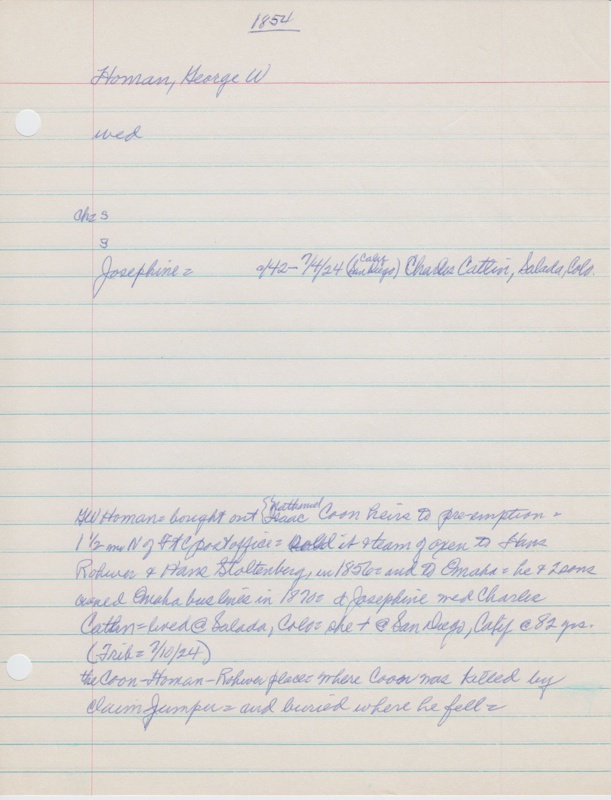 1854
Homan, George W
wed
chs s
s
Josephine = c/42 - 7/4/24 (San Diego Calif) Charles Catlin, Salada, Colo.
GW Homan = bought out {Nathaniel Isaac Coon heirs to pre-emption =
1 1/2 mi N of Ft C post office = sold it & team of oxen to Hans
Rohwer & Hans Stoltenberg, in 1856 = and to Omaha = he & 2 sons
owned Omaha bus lines in 1870s & Josephine wed Charles
Catlin = lived @ Salada, Colo = she + @ San Diego, Calif @ 82 yrs.
(Trib = 7/10/24)
the Coon - Homan - Rohwer place = where Coon was killed by
claim jumper = and buried where he fell =